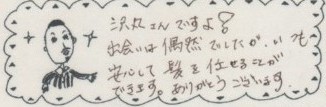 沢丸さんですよ?
出会いは偶然でしたが、いつも
安心して髪を任せることが
できます。ありがとうございます。